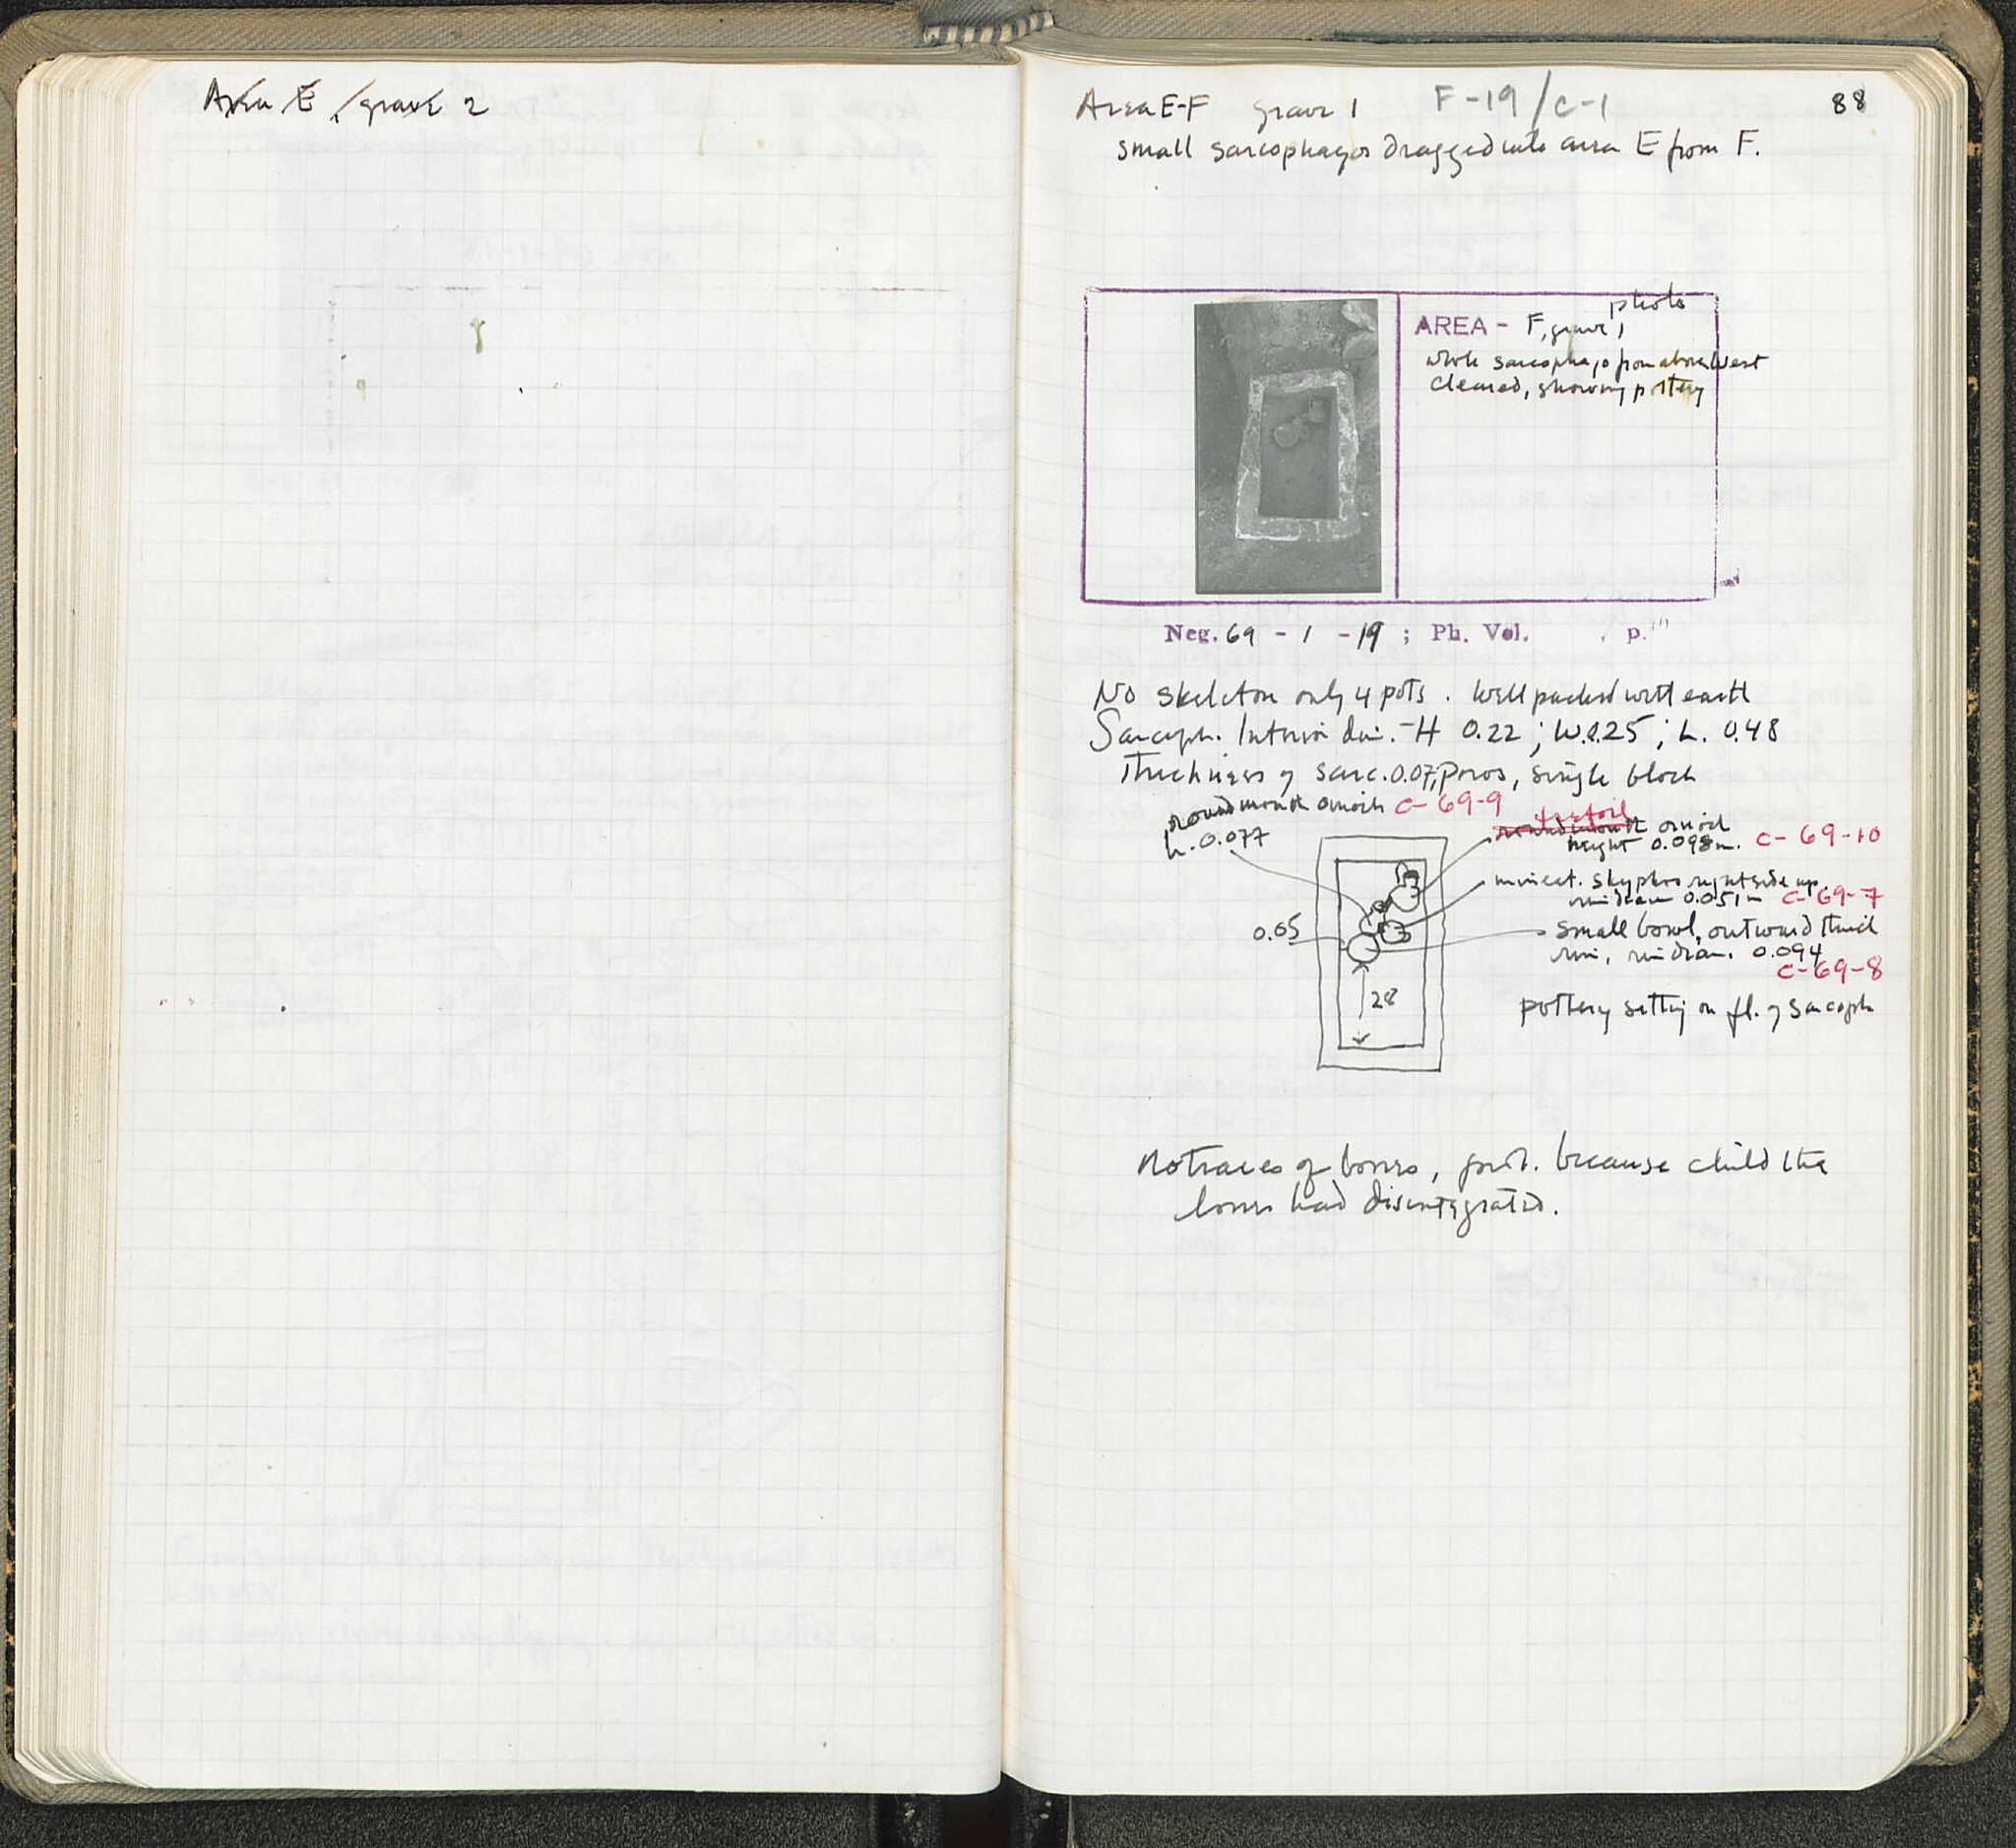 Area E, grave 2
Area E-F grave 1 F-19/C-1 88
small sarcophagos dragged into area E from F.
photo
AREA - F, grave 1
whole sarcophago from above West
cleared, showing pottery
Neg. 69 - 1 - 19 ; Ph. Vol. , p.
No skeleton only 4 pots. Well packed with earth
Sarcoph. Interior dim. - H 0.22 ; W. 0.25 ; L. 0.48
Thickness of sarc. 0.07, Poros, single block
round mouth oinoch C-69-9
h. 0.077
trefoil
round mouth oinoch
height 0.098m. C-69-10
miniat. skyphos right side up.
rim diam 0.051m C-69-7
0.05
small bowl, outward thick
rim, rim diam. 0.094
C-69-8
28
pottery setting on fl. of sarcoph
No traces of bones, prob. because child the
bones had disintegrated.